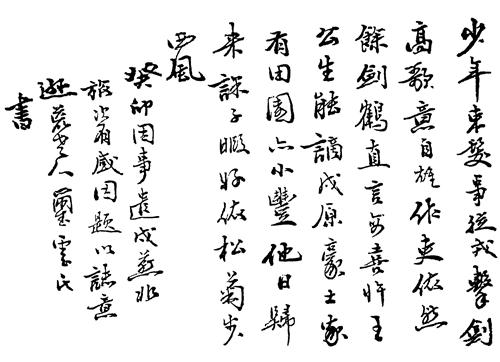 少年束髮事從戎擊劍
高歌意自雄作吏依然
餘劍鶴直言每喜忤王
公生能謫戍原豪士家
有田園亦小豐他日歸
來課子暇好依松菊步
西風
癸卯因事遣戍
旅次有感因題以誌意
遯老人雲氏
書